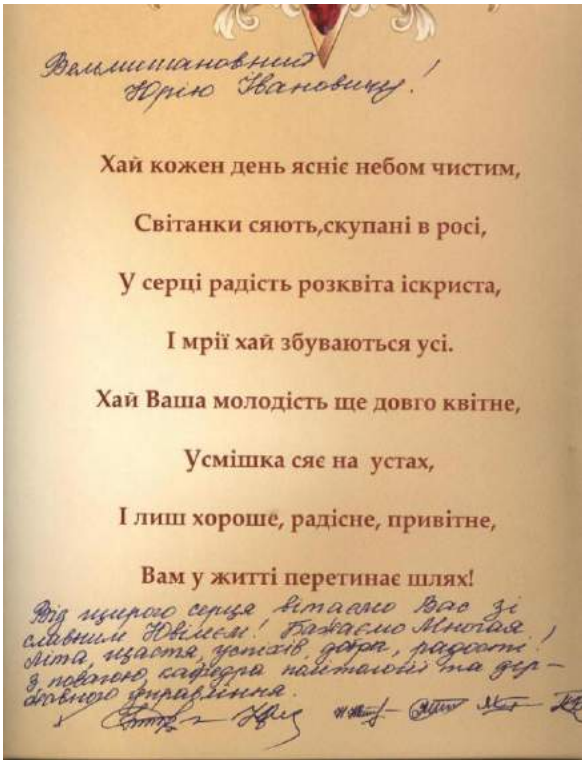 Вельмишановний
Юрію Івановичу!
Хай кожен день ясніє небом чистим,
Світанки сяють,скупані в росі,
У серці радість розквіта іскриста,
І мрії хай збуваються усі.
Хай Ваша молодість ще довго квітне,
Усмішка сяє на устах,
І лиш хороше, радісне, привітне,
Вам у житті перетинає шлях!
Від щирого серця вітаємо Вас зі
славним Ювілеєм! Бажаємо Многая
Літа, щастя, успіхів, добра, радості!
З повагою, кафедра політології та дер-
жавного управління.